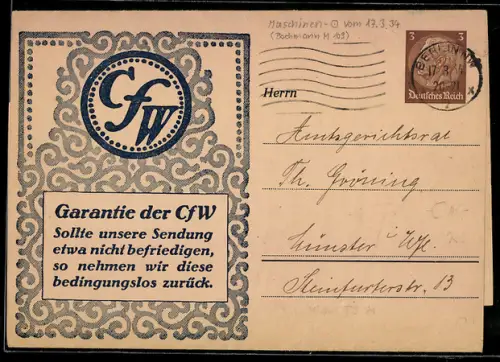 Maschinen-Q vom 17.3.34
(Bochmann M 109)
3 3
Deutsches Reich
BERLIN
17.3.
CfW
Herrn
Amtsgerichtsrat
Th. Gröning
Münster Wf.
Steinfurterstr. 13
Garantie der CfW
Sollte unsere Sendung
etwa nicht befriedigen,
so nehmen wir diese
bedingungslos zurück.